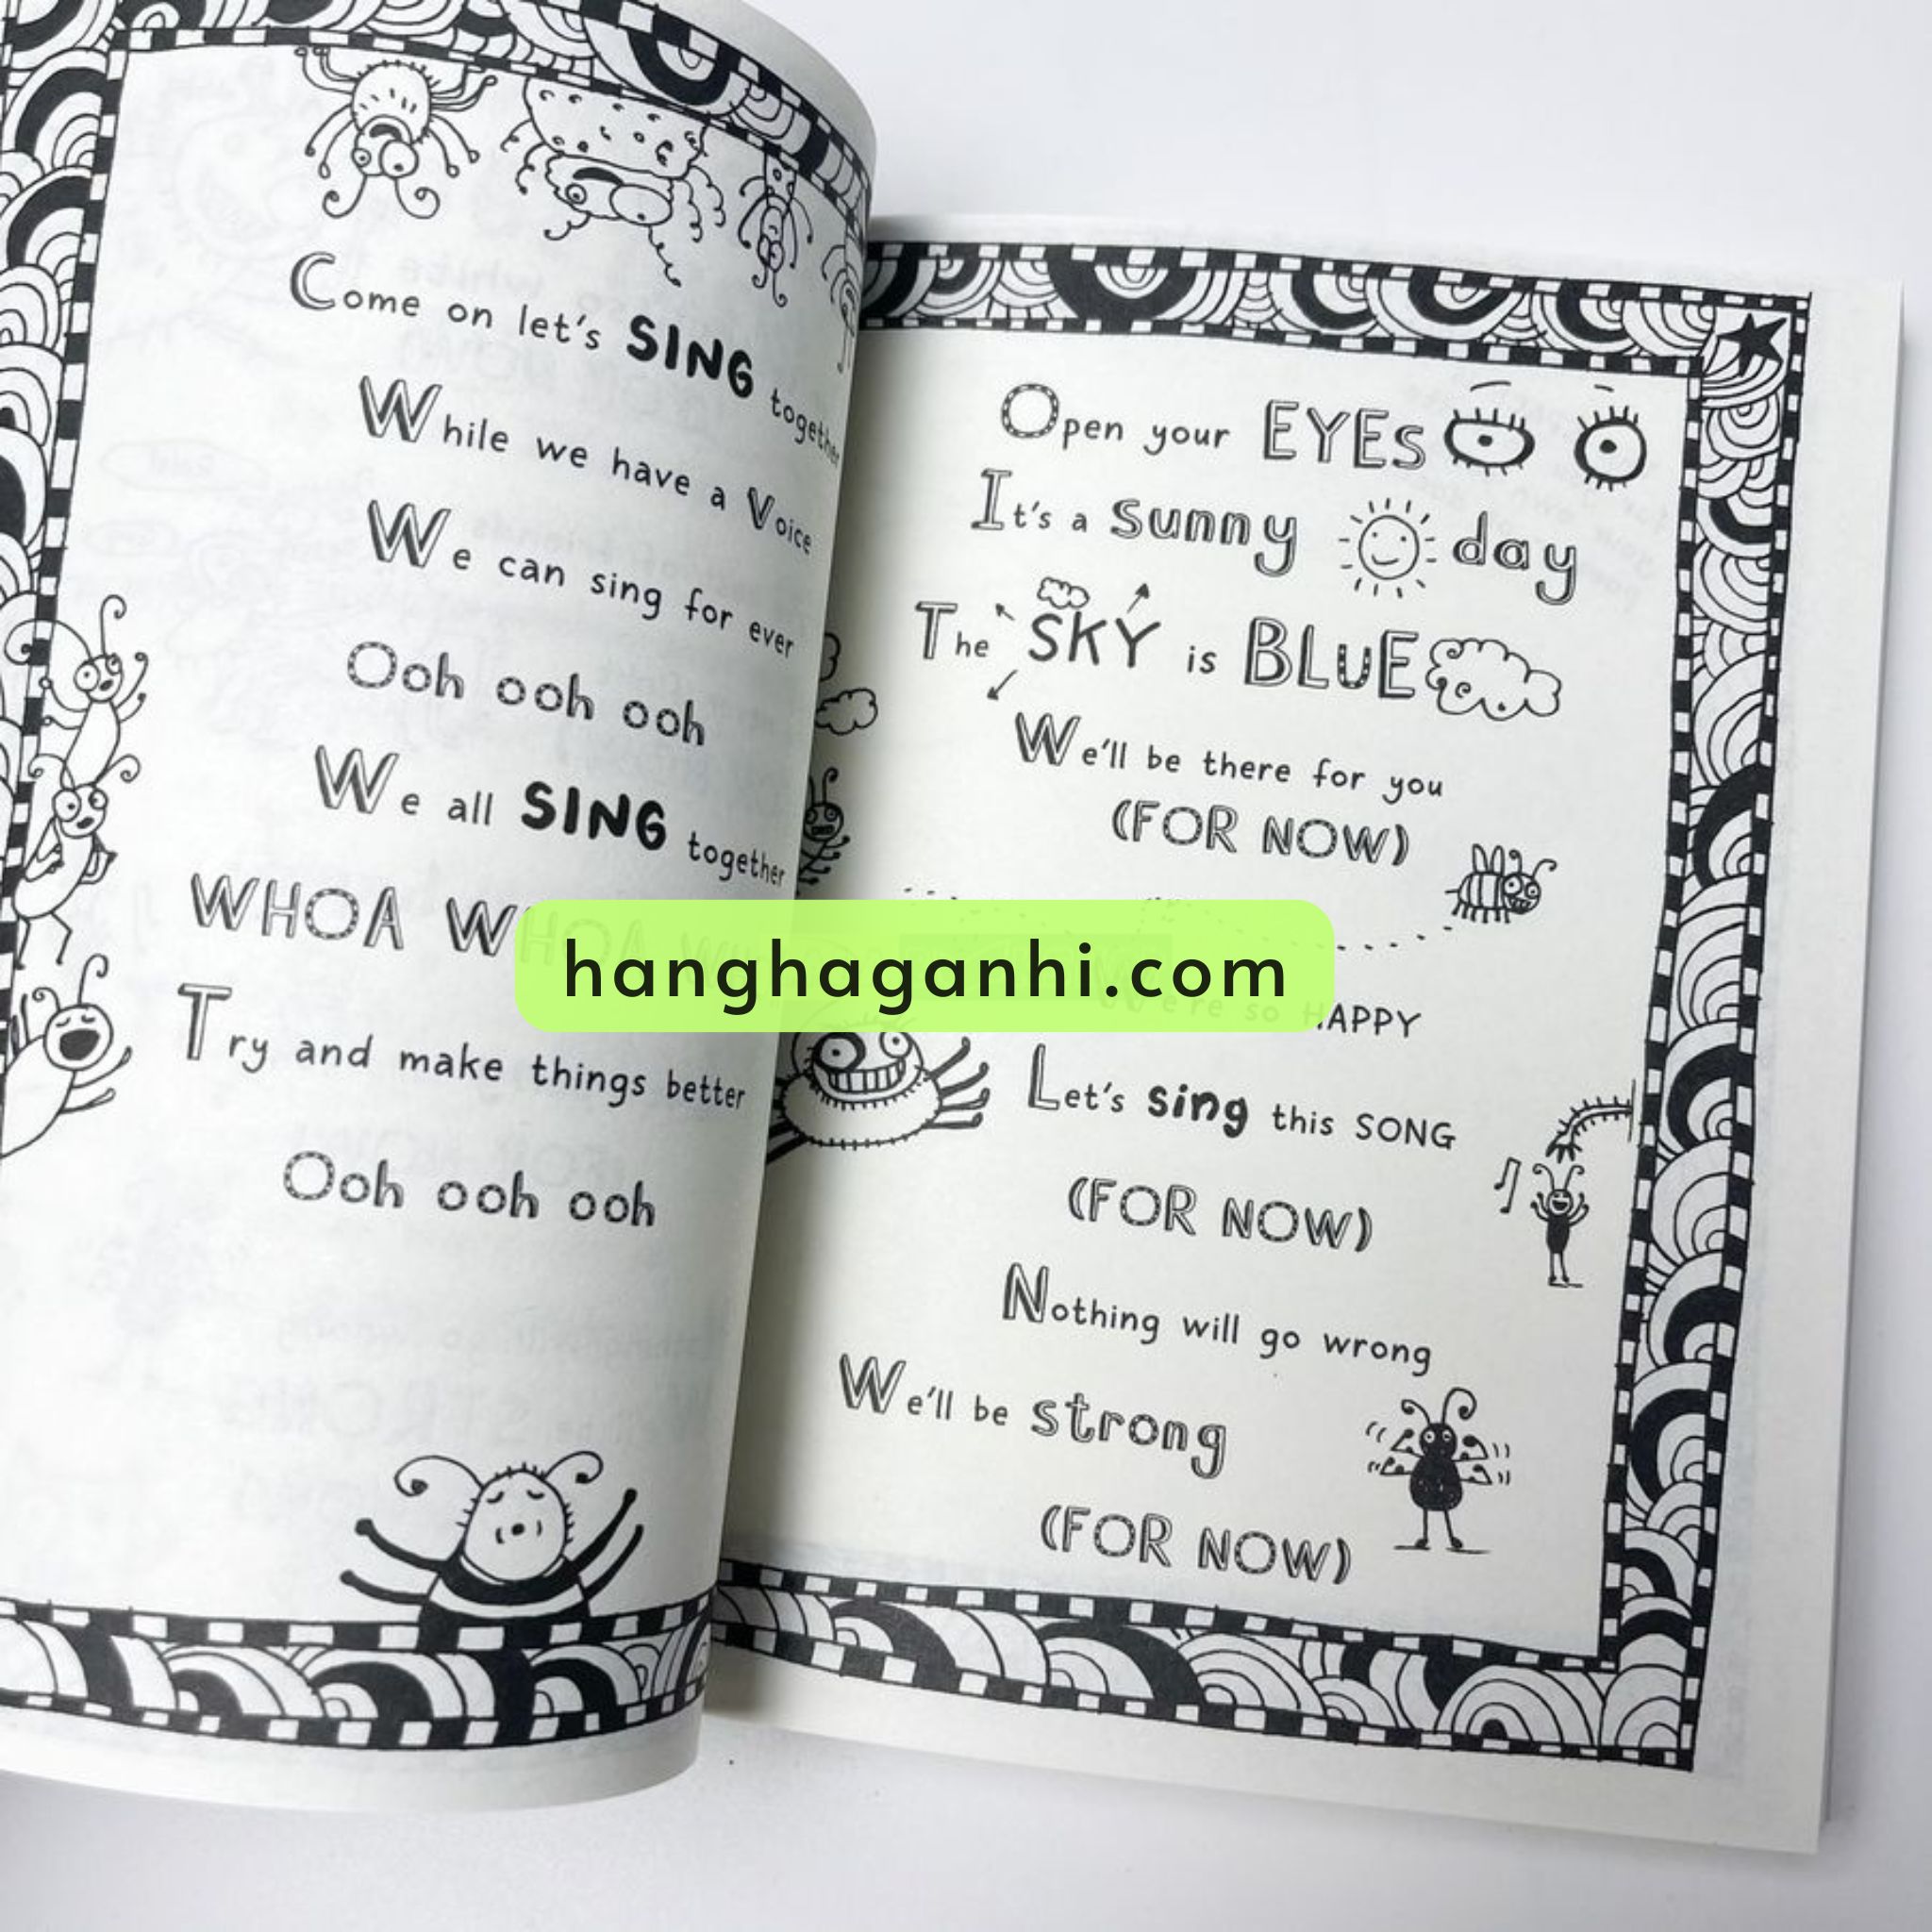 Come on let's SING together
While we have a Voice
We can sing for ever
Ooh ooh ooh
We all SING together
WHOA WHOA
Try and make things better
Ooh ooh ooh
Open your EYES
It's a sunny day
The SKY is BLUE
We'll be there for you
(FOR NOW)
hanghaganhi.com
We're so HAPPY
Let's sing this SONG
(FOR NOW)
Nothing will go wrong
We'll be strong
(FOR NOW)